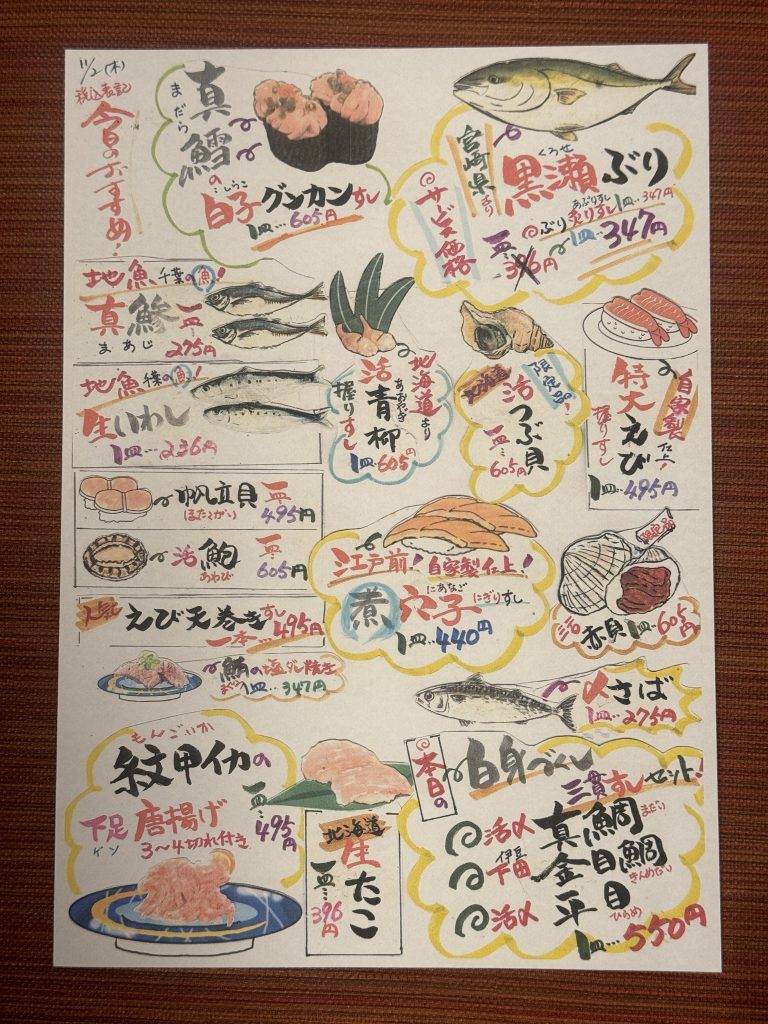 11/2(木)
税込表記
今日のおすすめ!
まだら
真鱈の
しらこ
白子グンカンすし
1皿…605円
宮崎県より
くろせ
黒瀬ぶり
サービス価格
あぶりすし
ぶり炙りすし1皿…347円
一皿…396円
1皿…347円
地魚千葉の魚!
真鯵
まあじ
一皿…275円
地魚千葉の魚!
生いわし
1皿…236円
北海道より
あおやぎ
活青柳
握りすし
1皿…605円
限定品!
北海道
活つぶ貝
一皿…605円
自家製仕上!
特大えび
握りすし
1皿…495円
帆立貝
ほたてがい
一皿…495円
活鮑
あわび
一皿…605円
人気
えび天巻きすし
一本…495円
鮪の塩ダレ焼き
まぐろ
1皿…347円
江戸前!自家製仕上!
にあなご
煮穴子にぎりすし
1皿…440円
限定品
活赤貝1皿…605円
〆さば
1皿…275円
もんごいか
紋甲イカの
下足唐揚げ
ゲソ
3〜4切れ付き
一皿…495円
北海道
生たこ
一皿…396円
本日の
白身づくし
三貫すしセット!
活〆真鯛
まだい
伊豆
下田金目鯛
きんめだい
活〆平目
ひらめ
1皿…550円